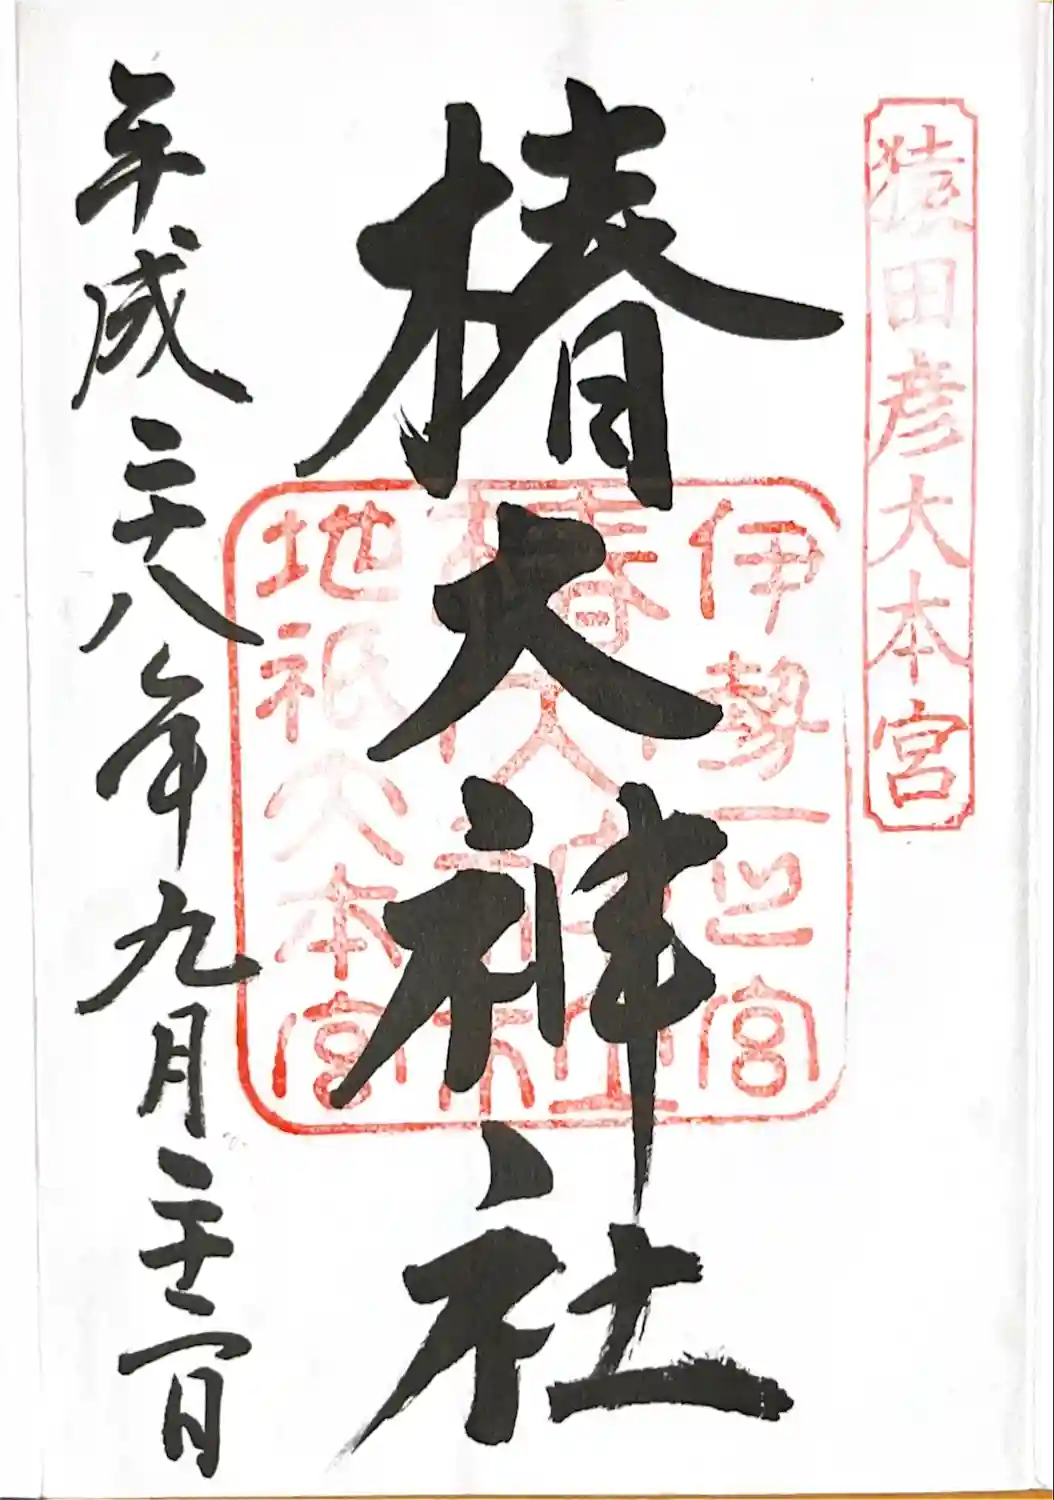 猿田彦大本宮
椿大神社
伊勢一之宮
椿大神社
地祇大本宮
平成二十八年九月二十二日